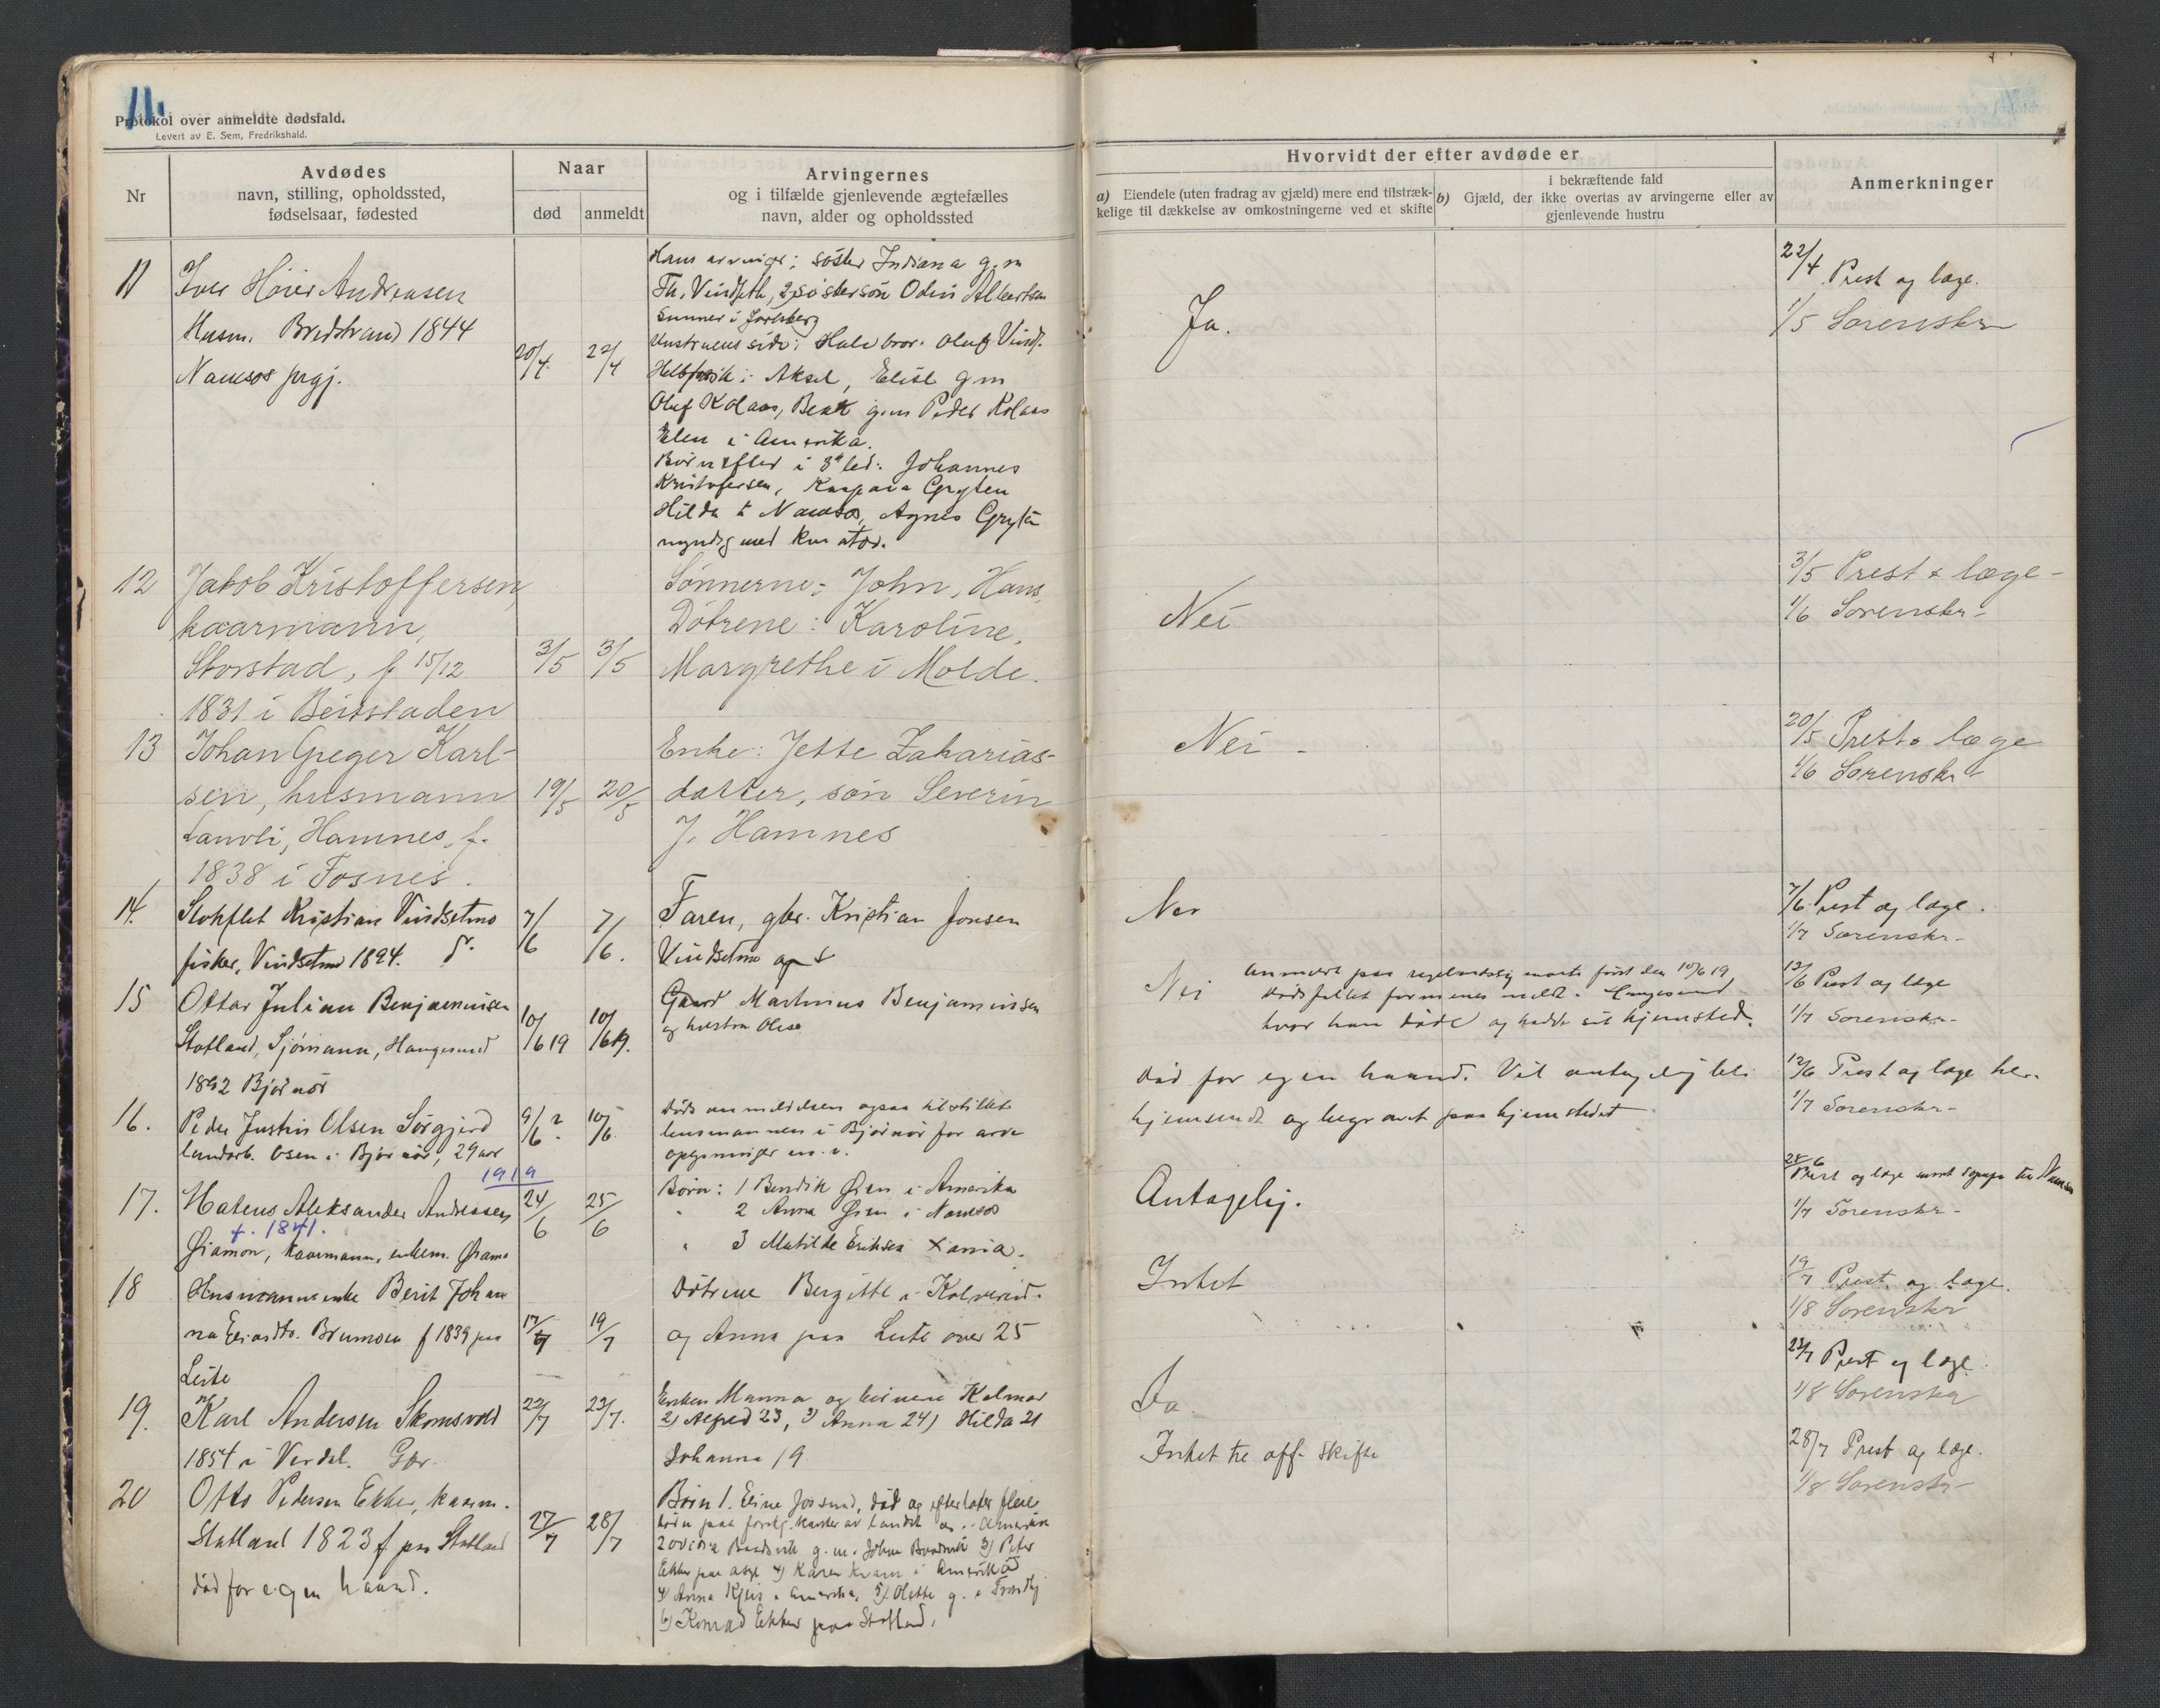 11.
Protokol over anmeldte dødsfald.
Levert av E. Sem, Fredrikshald.
Nr
Avdødes
navn, stilling, opholdssted,
fødselsaar, fødested
Naar
død
anmeldt
Arvingernes
og i tilfælde gjenlevende ægtefælles
navn, alder og opholdssted
Hvorvidt der efter avdøde er
a) Eiendele (uten fradrag av gjæld) mere end tilstræk-
kelige til dækkelse av omkostningerne ved et skifte
i bekræftende fald
b) Gjæld, der ikke overtas av arvingerne eller av
gjenlevende hustru
Anmerkninger
11
Andreasen
Husm. Bredstrand 1844
Namsos prgj.
20/4
22/4
Hans arvinger: søster Indiana g.m
Th. Vindseth, 2) søstersøn Odin Albertsen
Hustruens side: Halvbror. Oluf Vinds.
Aksel, Elise g m
Oluf Kolaas, g.m Peder Kolaas
Elen i Amerika.
Børn efter i 3' led: Johannes
Kristofersen, Gryten
Hilda Namsos, Agnes Gryten
myndig med kurator.
Ja.
22/4 Prest og læge.
1/5 Sorenskr
12
Jakob Kristoffersen,
kaarmann,
Storstad, f 15/12
1831 i Beitstaden
3/5
3/5
Sønnerne: John, Hans,
Døtrene: Karoline,
Margrethe i Molde.
Nei
3/5 Prest & læge -
1/6 Sorenskr-
13
Johan Greger Karl-
sen, husmann
Hamnes, f.
1838 i Fosnes.
19/5
20/5
Enke: Jette Zakarias-
datter, søn Severin
J. Hamnes
Nei -
20/5 Prest & læge
1/6 Sorenskr
14.
Kristian Vindsetmo
fisker, Vindsetmo 1894.
7/6
7/6.
Faren, gbr. Kristian Jonsen
Vindsetmo
Nei
7/6 Prest og læge.
1/7 Sorenskr-
15
Ottar Julian Benjaminsen
Statland, Sjømann, Haugesund
1892 Bjørnør
10/6 19
10/6 19.
Martinus Benjaminsen
og hustru
Nei
først den 10/6 19
Dødsfaldet formenes meldt i Haugesund
hvor han døde og hadde sit hjemsted.
12/6 Prest og læge
1/7 Sorenskr-
16.
Peder Justin Olsen Sørgjerd
landarb. Osen i Bjørnør, 29 aar
9/6 ?
10/6
Dødsanmeldelsen ogsaa tilstillet
lensmannen i Bjørnør for arve
oplysninger m. v.
død for egen haand. Vil antagelig bli
hjemsendt og begravet paa hjemstedet
12/6 Prest og læge her.
1/7 Sorenskr-
1919
17.
Mateus Aleksander Andreassen
f. 1841.
kaarmann, enkem.
24/6
25/6
Børn: 1 Bendik Øien i Amerika
" 2 Anna Øien i Namsos
" 3 Matilde Eriksen Xania.
Antagelig.
28/6
Prest og læge samt
1/7 Sorenskr-
18
Husmannsenke Berit Johan
na f 1839 paa
Leite
17/7
19/7
Døtrene Bergitte i Kolvereid.
og Anna paa Leite over 25
Intet
19/7 Prest og læge.
1/8 Sorenskr
19.
Karl Andersen Skomsvold
1854 i Verdal. Gbr.
22/7
23/7.
Enken Manna og Kalmar
2) Alfred 23, 3) Anna 24) Hilda 21
Johanna 19
Ja
23/7 Prest og læge.
1/8 Sorenskr
20
Otto Pedersen Ekker, kaarm.
Statland 1823 f paa Statland
død for egen haand.
27/7
28/7
Børn 1. død og efterlater flere
børn paa av landet og i Amerika
g. m. Johan 3) Peter
Ekker paa 4) Karen i Amerika
4) Anna i Amerika, 5) Olette g. i Trondhj
6) Konrad Ekker paa Statland.
Intet til off. skifte
28/7 Prest og læge.
1/8 Sorenskr-